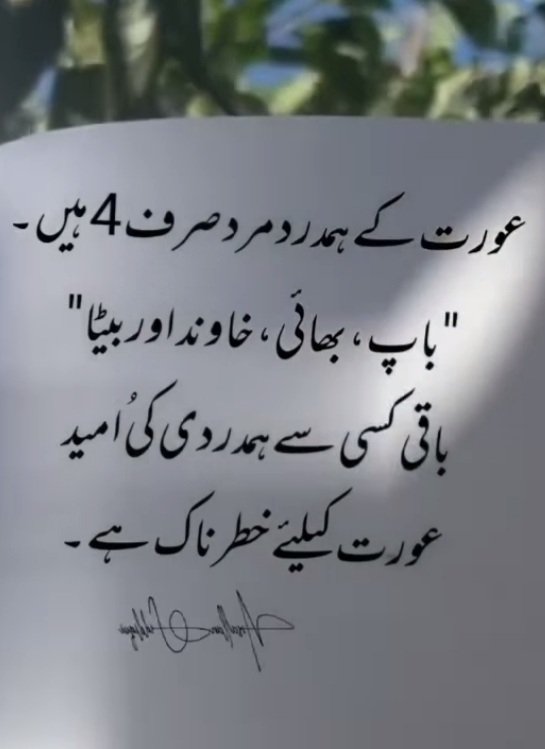 عورت کے ہمدرد مرد صرف 4 ہیں۔
"باپ، بھائی، خاوند اور بیٹا"
باقی کسی سے ہمدردی کی اُمید
عورت کیلئے خطرناک ہے۔